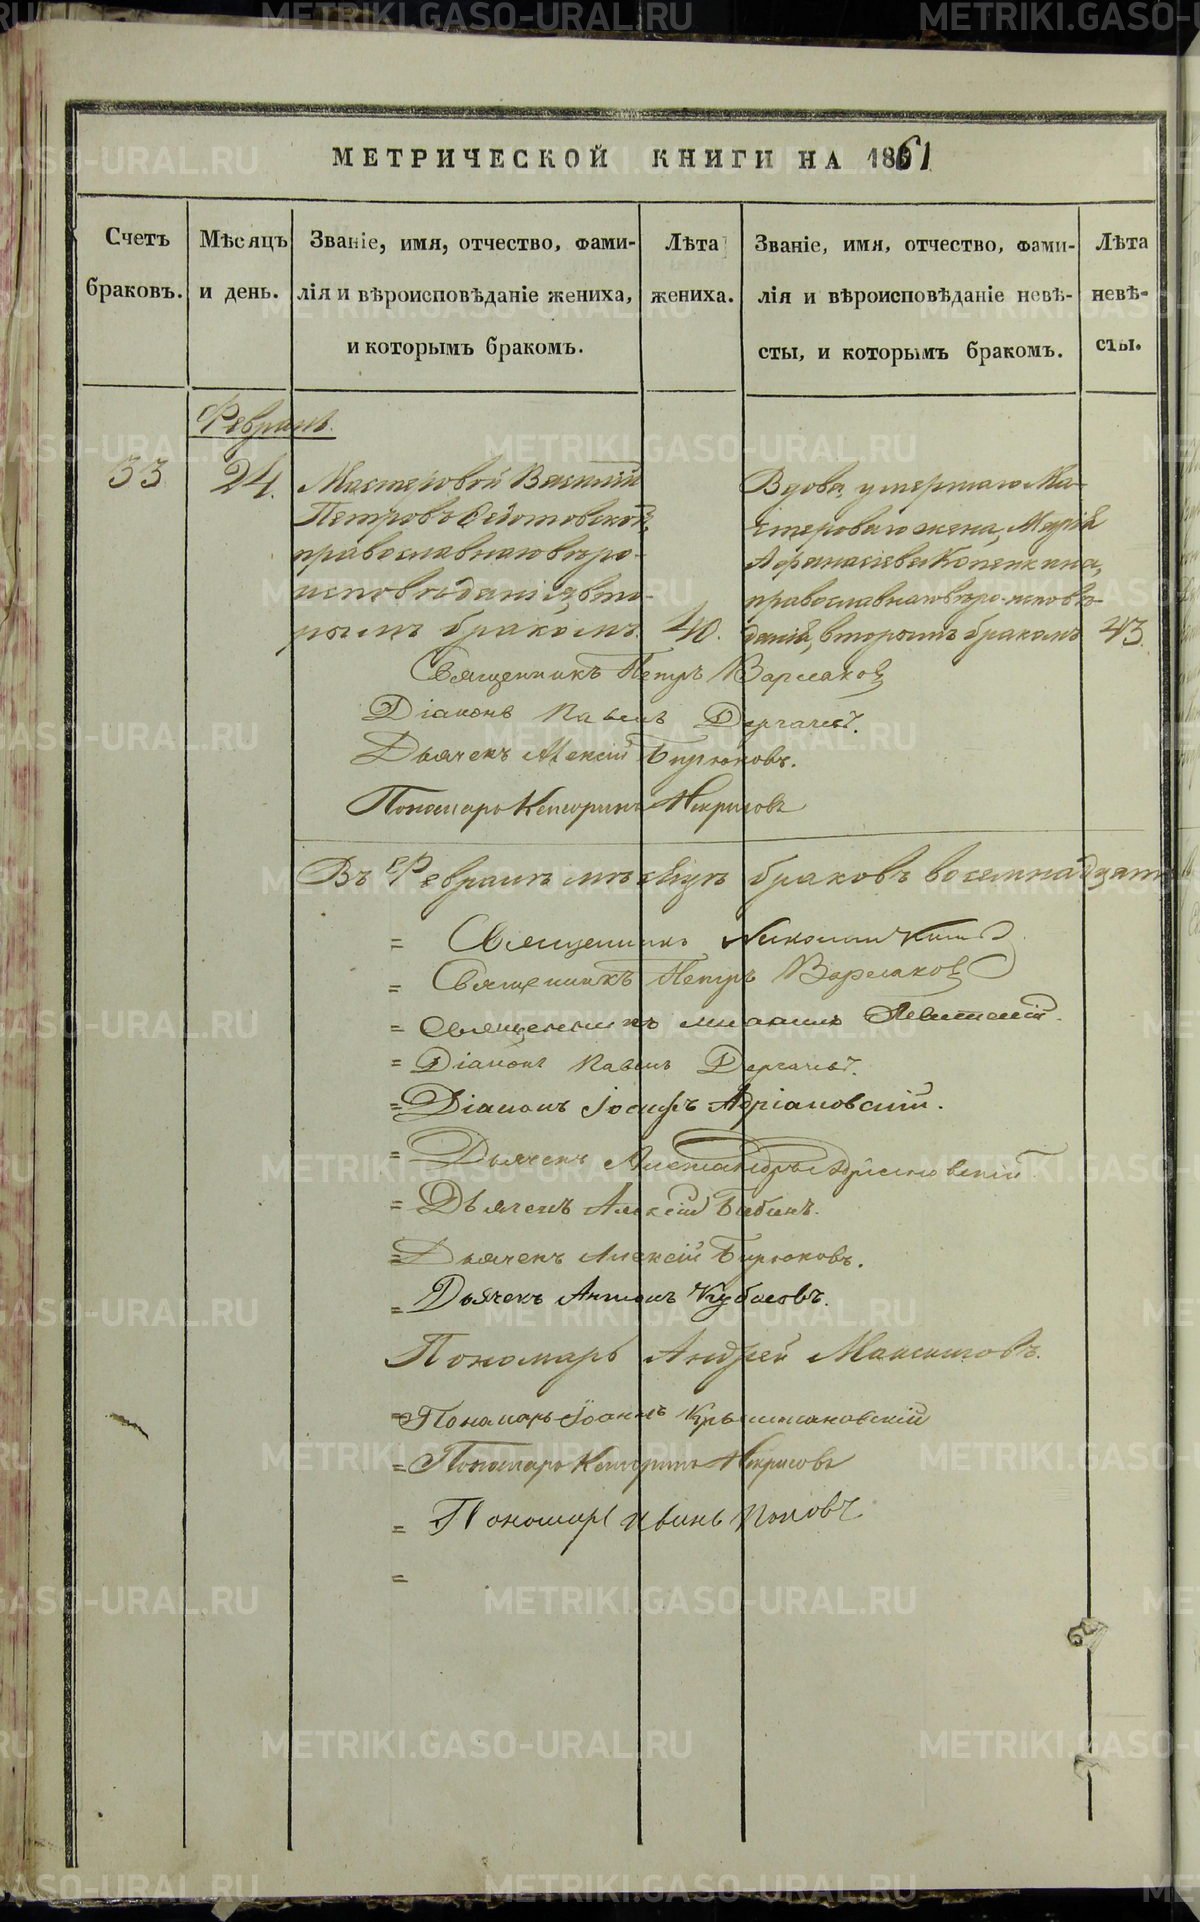 МЕТРИЧЕСКОЙ КНИГИ НА 1861
Счетъ браковъ.
Мѣсяцъ и день.
Званіе, имя, отчество, фами-
лія и вѣроисповѣданіе жениха,
и которымъ бракомъ.
Лѣта жениха.
Званіе, имя, отчество, фами-
лія и вѣроисповѣданіе невѣ-
сты, и которымъ бракомъ.
Лѣта невѣ-
сты.
Февраль.
33.
24.
Мастеровой Василій
Петровъ Ѳедотовской,
православнаго вѣро-
исповѣданія, вто-
рымъ бракомъ.
40.
Вдова, умершаго Ма-
стероваго жена, Марія
Афанасіева Копенкина,
православнаго вѣро-исповѣ-
данія, вторымъ бракомъ
43.
Священникъ Петръ Варлаковъ
Діаконъ Павелъ Дергачевъ.
Дьячекъ Алексій Бирюковъ.
Пономарь Некрасовъ
Въ Февралѣ мѣсяцѣ браковъ восемнадцать
= Священникъ Николай
= Священникъ Петръ Варлаковъ
= Священникъ Михаилъ Левитскій.
= Діаконъ Павелъ Дергачевъ.
= Діаконъ Іосифъ Адріановскій.
= Дьячекъ Александръ Адріановскій
= Дьячекъ Алексій Бабинъ.
= Дьячекъ Алексій Бирюковъ.
= Дьячекъ Антонъ Кубасовъ.
Пономарь Андрей Максимовъ.
= Пономарь Іоаннъ
= Пономарь Некрасовъ
= Пономарь Иванъ Поповъ
=
METRIKI.GASO-URAL.RU